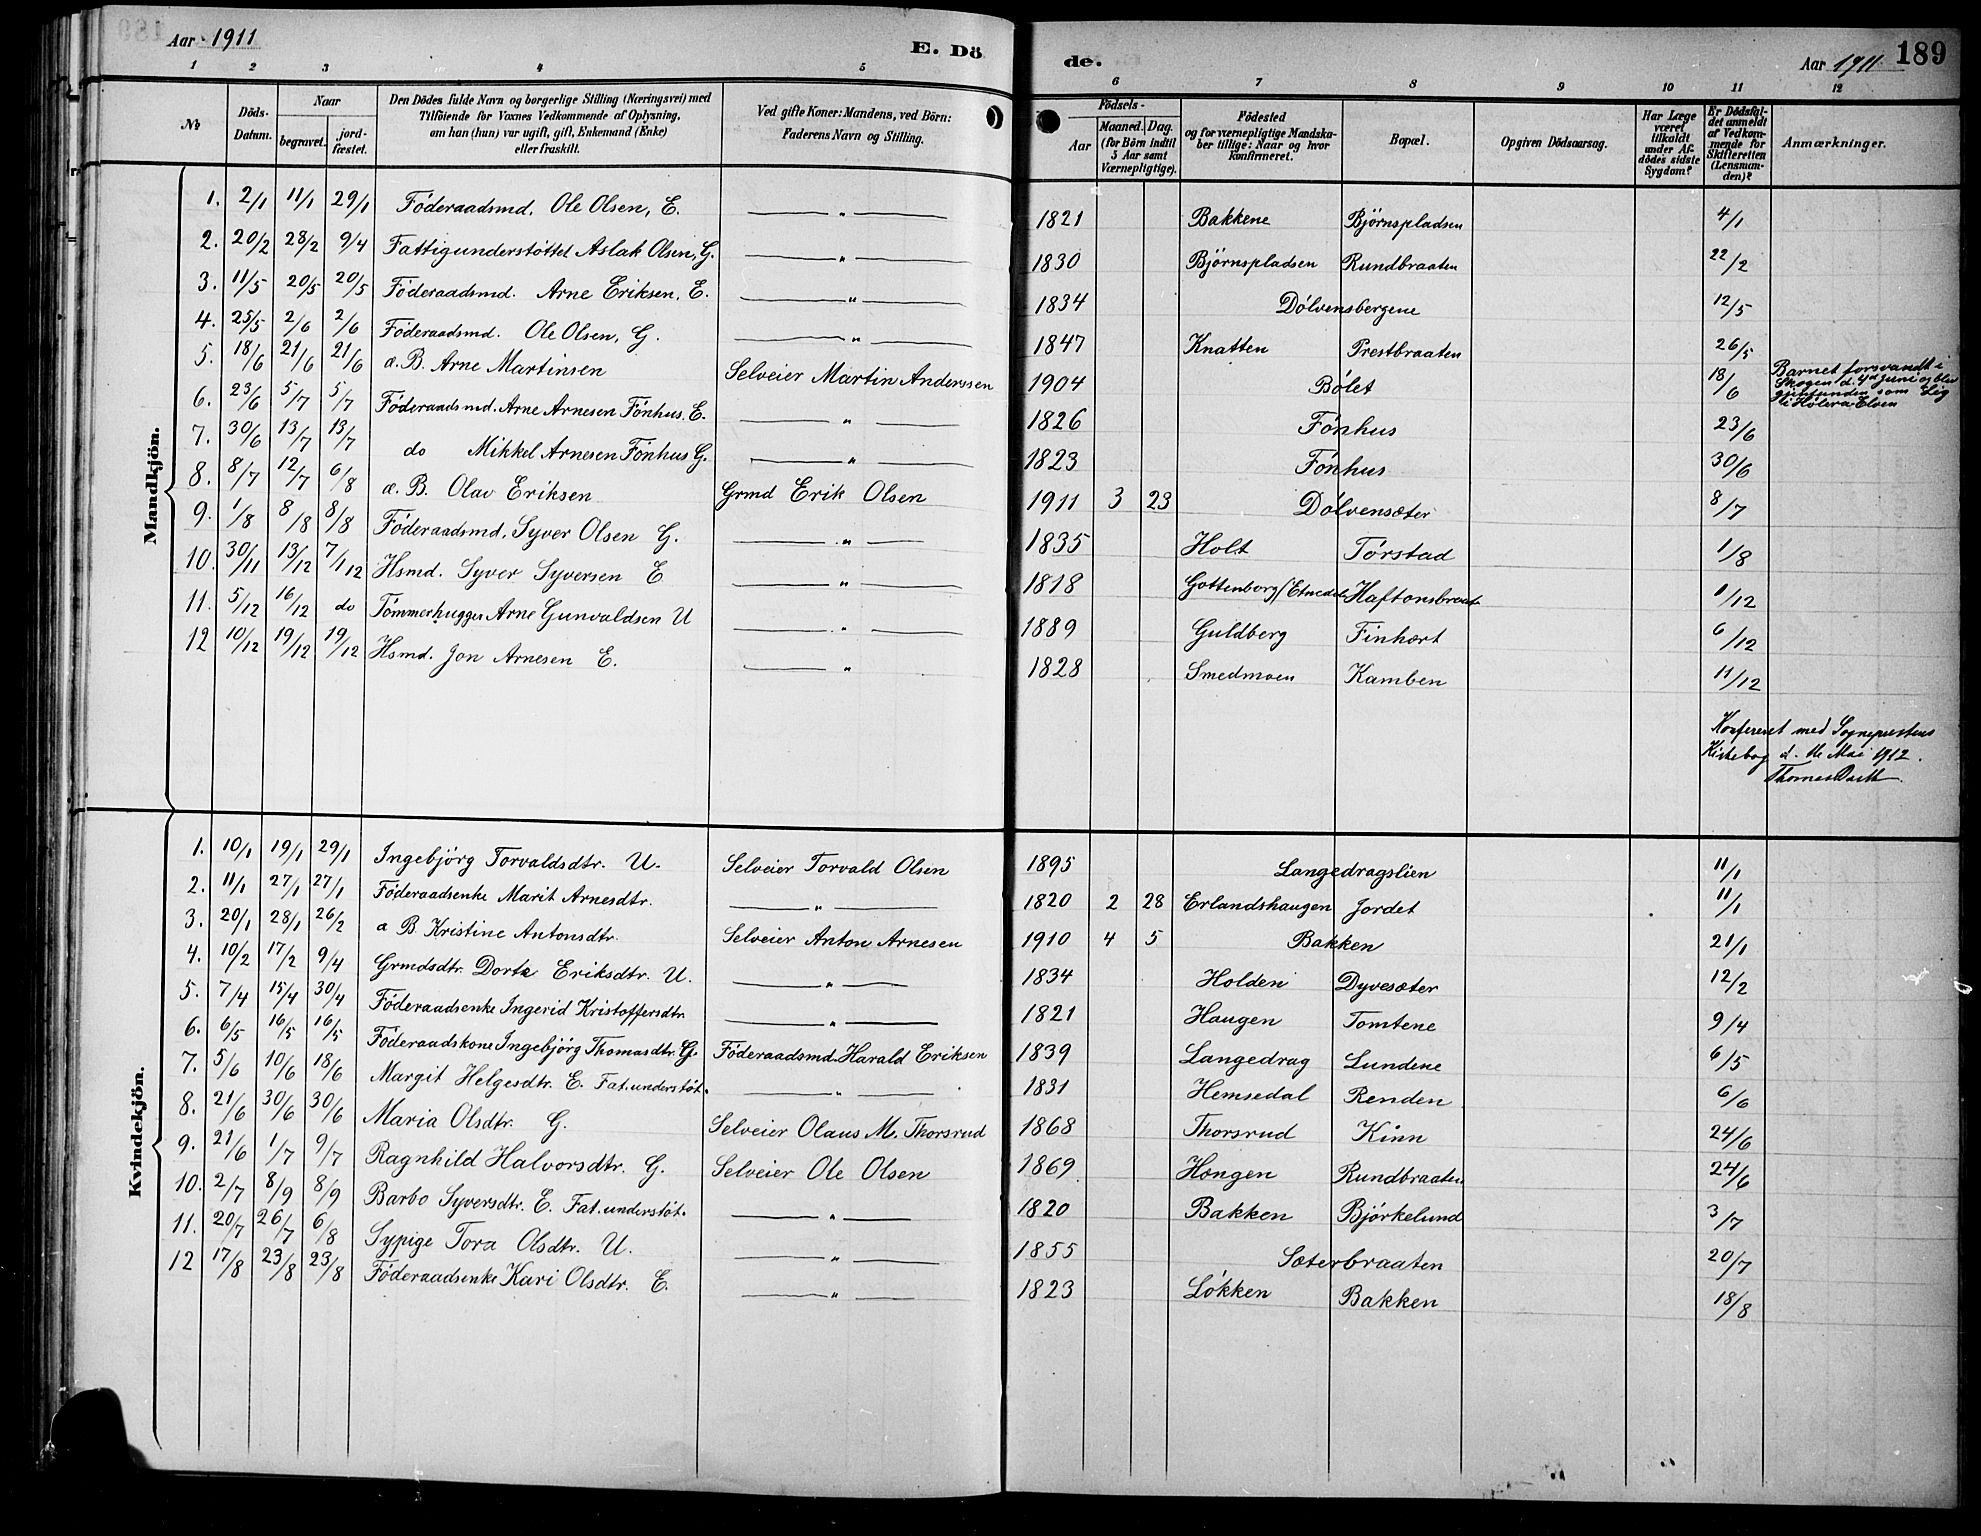 Aar 1911 E. Dö de. Aar 1911 189
1 2 3 4 5 6 7 8 9 10 11 12
№ Döds-Datum. Naar begravet. jord-fæstet. Den Dödes fulde Navn og borgerlige Stilling (Næringsvei) med Tilföiende for Voxnes Vedkommende af Oplysning, om han (hun) var ugift, gift, Enkemand (Enke) eller fraskilt. Ved gifte Koner: Mandens, ved Börn: Faderens Navn og Stilling. Födsels- Aar Maaned. Dag. (for Börn indtil 5 Aar samt Værnepligtige). Födested og for værnepligtige Mandska-ber tillige: Naar og hvor konfirmeret. Bopæl. Opgiven Dödsaarsag. Har Læge været tilkaldt under Af-dödes sidste Sygdom? Er Dödsfal-det anmeldt af Vedkom-mende for Skifteretten (Lensman-den)? Anmærkninger.
Mandkjön.
1. 2/1 11/1 29/1 Föderaadsmd. Ole Olsen, E. — " — 1821 Bakkene Björnspladsen 4/1
2. 20/2 28/2 9/4 Fattigunderstöttet Aslak Olsen, G. — " — 1830 Björnspladsen Rundbraaten 22/2
3. 11/5 20/5 20/5 Föderaadsmd. Arne Eriksen, E. — " — 1834 Dölvensbergene 12/5
4. 25/5 2/6 2/6 Föderaadsmd. Ole Olsen, G. — " — 1847 Knatten Prestbraaten 26/5
5. 18/6 21/6 21/6 æ. B. Arne Martinsen Selveier Martin Anderssen 1904 Bölet 18/6 Barnet forsvandt i
Skogen d. 4d Juni og blev
gjenfunden som Lig
i Hölera Elven
6. 23/6 5/7 5/7 Föderaadsmd. Arne Arnesen Fönhus. E. — " — 1826 Fönhus 23/6
7. 30/6 13/7 13/7 do Mikkel Arnesen Fönhus G. — " — 1823 Fönhus 30/6
8. 8/7 12/7 6/8 æ. B. Olav Eriksen Grmd Erik Olsen 1911 3 23 Dölvensæter 8/7
9. 1/8 8/8 8/8 Föderaadsmd. Syver Olsen G. — " — 1835 Holt Törstad 1/8
10. 30/11 13/12 7/1 12 Hsmd. Syver Syversen E — " — 1818 Gottenborg/Etnedal Haftonsbraat. 1/12
11. 5/12 16/12 do Tömmerhugger Arne Gunvaldsen U — " — 1889 Guldberg Finhært 6/12
12 10/12 19/12 19/12 Hsmd. Jon Arnesen E. — " — 1828 Smedmoen Kamben 11/12
Konfereret med Sogneprestens
Kirkebog d. Mai 1912.
Thomas
Kvindekjön.
1. 10/1 19/1 29/1 Ingebjörg Torvaldsdtr. U. Selveier Torvald Olsen 1895 Langedragslien 11/1
2. 11/1 27/1 27/1 Föderaadsenke Marit Arnesdtr. — " — 1820 2 28 Erlandshaugen Jordet 11/1
3. 20/1 28/1 26/2 æ B. Kristine Antonsdtr. Selveier Anton Arnesen 1910 4 5 Bakken 21/1
4. 10/2 17/2 9/4 Grmdsdtr. Dorte Eriksdtr. U. — " — 1834 Holden Dyvesæter 12/2
5. 7/4 15/4 30/4 Föderaadsenke Ingerid Kristoffersdtr. — " — 1821 Haugen Tomtene 9/4
6. 6/5 16/5 16/5 Föderaadskone Ingebjörg Thomasdtr. G. Föderaadsmd. Harald Eriksen 1839 Langedrag Lundene 6/5
7. 5/6 10/6 18/6 Margit Helgesdtr. E. Fat. understöt. — " — 1831 Hemsedal Renden 6/6
8. 21/6 30/6 30/6 Maria Olsdtr. G. Selveier Olaus M. Thorsrud 1868 Thorsrud Kinn 24/6
9. 21/6 1/7 9/7 Ragnhild Halvorsdtr. G. Selveier Ole Olsen 1869 Hongen Rundbraaten 24/6
10. 2/7 8/9 8/9 Barbo Syversdtr. E. Fat. understöt. — " — 1820 Bakken Björkelund 3/7
11. 20/7 26/7 6/8 Sypige Tora Olsdtr. U. — " — 1855 Sæterbraaten 20/7
12 17/8 23/8 23/8 Föderaadsenke Kari Olsdtr. E. — " — 1823 Lökken Bakken 18/8